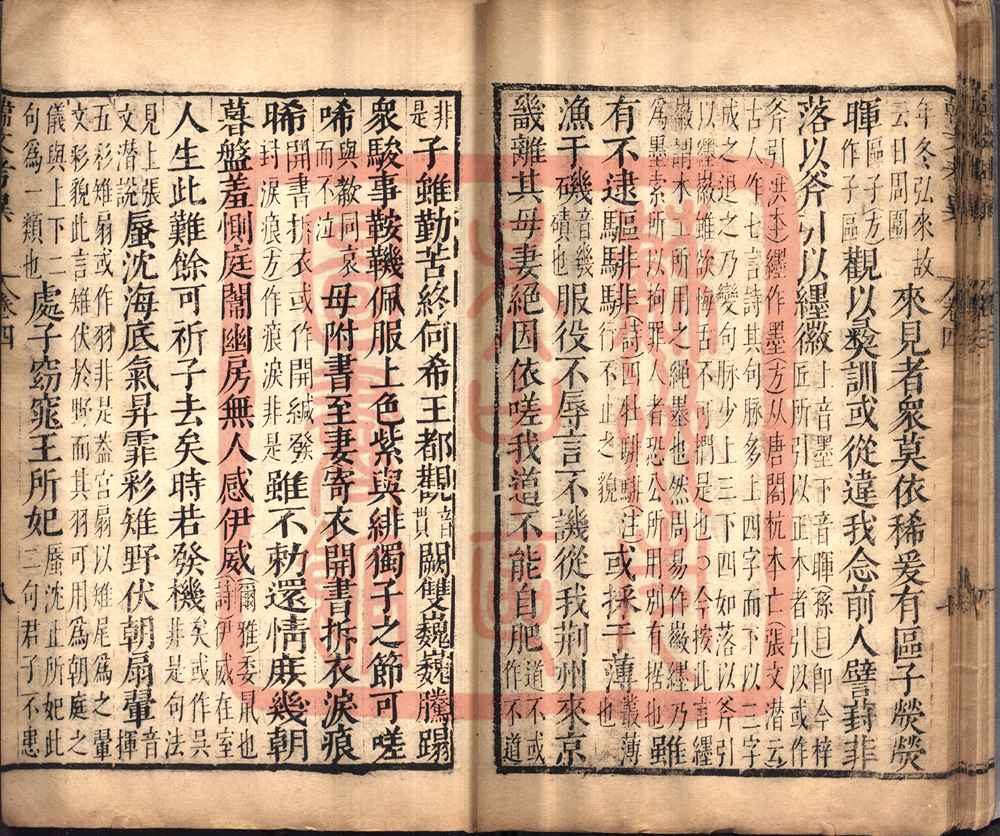 年冬弘來故
云日周圍
來見者衆莫依稀爰有區子熒熒
暉
區子方
作子區
觀以彝訓或從違我念前人譬葑菲
落以斧引以纆徽
上音墨下音暉孫旦卽今梓
匠所引以正木者引以或作
斧引洪本纆作墨方从唐閣杭本亡張文潛云
古人作七言詩其句脉多上四字而下以三字
成之退之乃變句脉少上三下四如落以斧引
以纆徽雖欲悔舌不可捫是也○今按此言纆
徽謂木工所用之繩墨也然周易作徽纆乃
爲墨索所以拘罪人者恐公所用別有據也
雖
有不逮驅騑騑
詩四牡騑騑注
行不不止之貌
或採于薄
叢薄
也
漁于磯
音幾
磧也
服役不辱言不譏從我荆州來京
畿離其母妻絕因依嗟我道不能自肥
道不或
作不道
非
是
子雖勤苦終何希王都觀
音
貫
闕雙巍巍騰蹋
衆駿事鞍鞿佩服上色紫與緋獨子之節可嗟
唏
與欷同哀
而不泣
母附書至妻寄衣開書拆衣淚痕
晞
開書拆衣或作開緘發
封淚痕方作痕淚非是
雖不勑還情庶幾朝
暮盤羞惻庭闈幽房無人感伊威
爾雅委鼡也
詩伊威在室
人生此難餘可祈子去矣時若發機
矣或作吴
非是句法
見上張
文潛說
蜃沈海底氣昇霏彩雉野伏朝扇翬
音
揮
五彩雉扇或作羽非是蓋宫扇以雉尾爲之翬
文彩貌此言雉伏於野而其羽可用爲朝庭之
儀與上下二
句爲一類也
處子窈窕王所妃
蜃沈止所妃此
三句君子不患
卷四
八